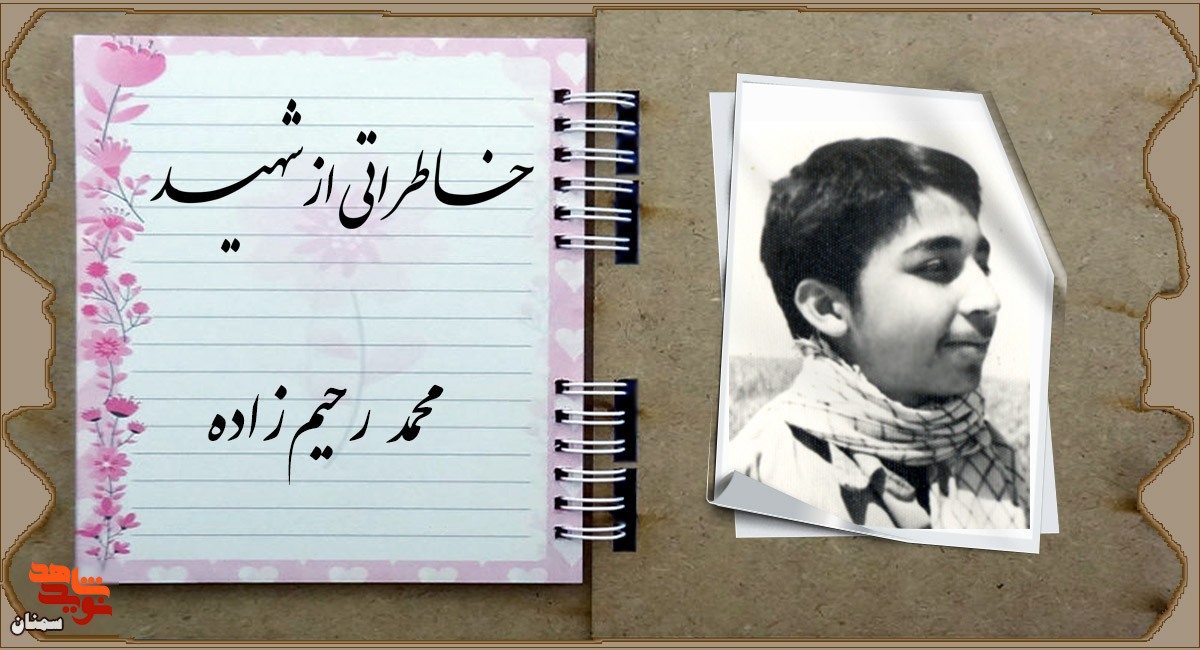 خاطراتی از شهید
محمد رحیم زاده
نوید شاهد
سمنان